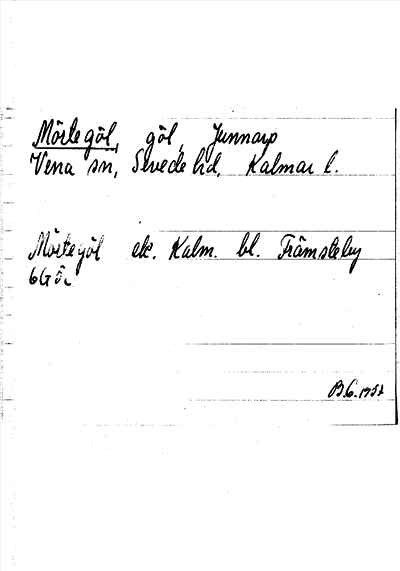 Mörtegöl, göl, Junnarp
Vena sn, Sevede hd, Kalmar l.
Mörtegöl ek. Kalm. bl. Främsteby
6G ö
B.G. 1952